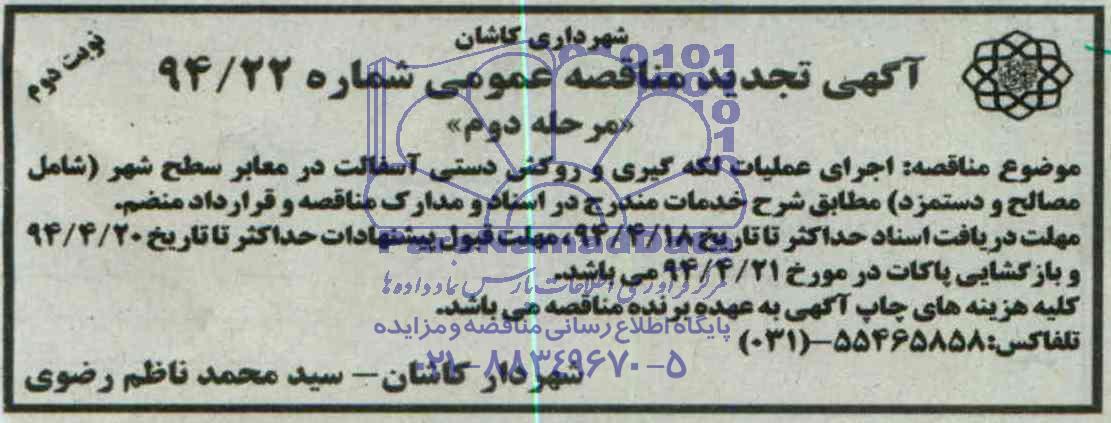 شهرداری کاشان
نوبت دوم
آگهی تجدید مناقصه عمومی شماره ۹۴/۲۲
«مرحله دوم»
موضوع مناقصه: اجرای عملیات لکه گیری و روکش دستی آسفالت در معابر سطح شهر (شامل
مصالح و دستمزد) مطابق شرح خدمات مندرج در اسناد و مدارک مناقصه و قرارداد منضم.
مهلت دریافت اسناد حداکثر تا تاریخ ۹۴/۴/۱۸، مهلت قبول پیشنهادات حداکثر تا تاریخ ۹۴/۴/۲۰
و بازگشایی پاکات در مورخ ۹۴/۴/۲۱ می باشد.
کلیه هزینه های چاپ آگهی به عهده برنده مناقصه می باشد.
تلفاکس: ۵۵۴۶۵۸۵۸–(۰۳۱)
شهردار کاشان – سید محمد ناظم رضوی
ParsNamadData
مرکز فرآوری اطلاعات پارس نماد داده ها
پایگاه اطلاع رسانی مناقصه و مزایده
۰۲۱–۸۸۳۴۹۶۷۰–۵